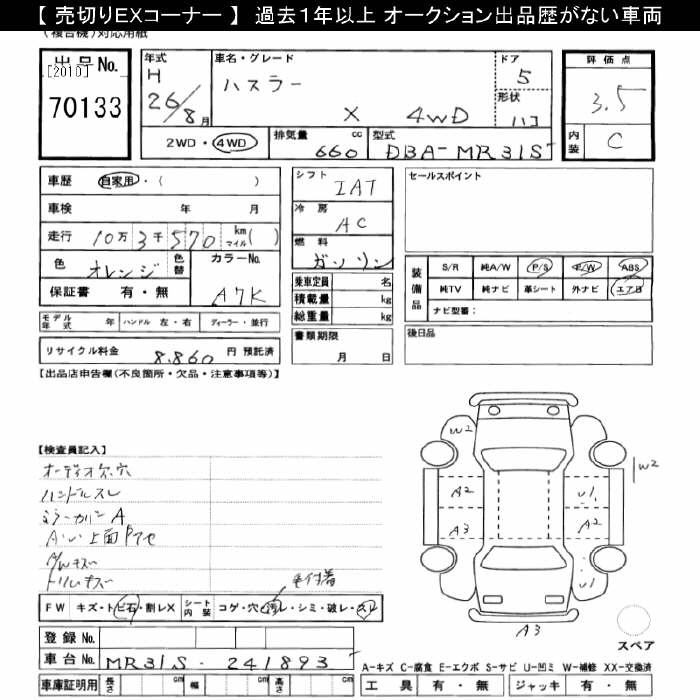 【 売切りEXコーナー 】 過去１年以上 オークション出品歴がない車両
(複合機)対応用紙
出品No.
[2010]
70133
年式
H
26/8月
車名・グレード
ハスラー
X 4WD
ドア
5
形状
ハコ
評価点
3.5
内装
C
2WD・4WD
排気量
660 cc
型式
DBA-MR31S
車歴 自家用・( )
車検 年 月
走行 10万 3千 570 km マイル( )
色 オレンジ 色替
カラーNo.
A7K
保証書 有・無
シフト
IAT
冷房
AC
燃料
ガソリン
乗車定員 名
積載量 kg
総重量 kg
セールスポイント
装備品
S/R 純A/W P/S P/W ABS
純TV 純ナビ 革シート 外ナビ エアB
ナビ型番：
モデル年式 年 ハンドル 左・右 ディーラー・並行
リサイクル料金 8.860 円 預託済
書類期限
月 日
後日品
【出品店申告欄(不良箇所・欠品・注意事項等)】
【検査員記入】
オーディオ欠、穴
ハンドルスレ
A
W2
W2
A2
U1
A3
A2
U1
A3
FW キズ・トビ石・割レX シート内装 コゲ・穴・汚レ・シミ・破レ・スレ
登録No.
車台No. MR31S-241893
スペア
A―キズ C―腐食 E―エクボ S―サビ U―凹ミ W―補修 XX―交換済
車庫証明用 長さ cm 幅 cm 高さ cm
工具 有・無 ジャッキ 有・無